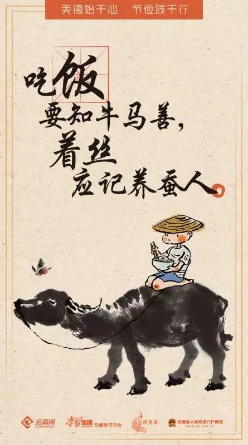 美德始于心 节俭践于行
吃饭
要知牛马善，
着丝
应记养蚕人。
云南网